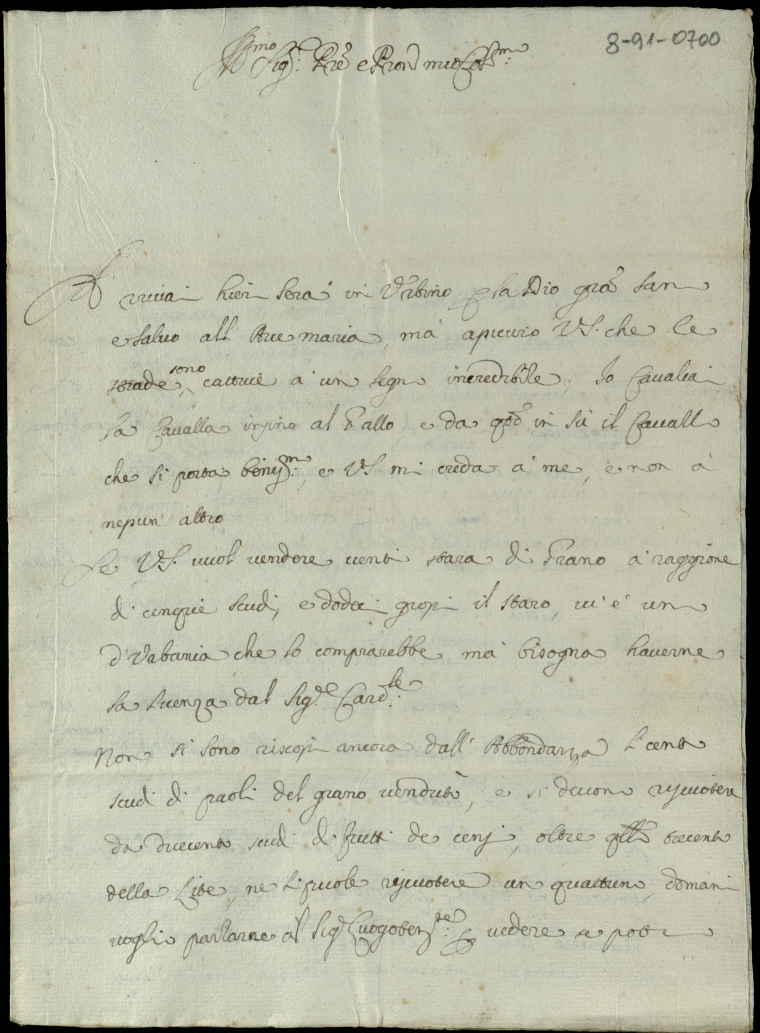 8-91-0700
Ill.mo Sig.r Pre e Pron mio Col.mo
Arrivai hieri sera in Urbino p la Dio gra sano
e salvo all' Ave maria, mà assicuro V.S. che le
strade sono cattive à un segno incredibile. Io Cavalcai
la Cavalla insino al Gallo e da qto in sù il Cavallo
che si porta beniss.mo, e V.S. mi creda à me, e non à
nessun' altro
Se V.S. vuol vendere venti stara di Grano à raggione
di cinque scudi, e dodeci grossi il staro, vi è uno
d'Urbania che lo comprarebbe mà bisogna haverne
la licenza dal Sig.r Card.le
Non si sono riscossi ancora dall' Abbondanza li cento
scudi di paoli del grano venduto, e si devono riscuotere
da ducento scudi di frutti de censi, oltre qlli trecento
della Lite, ne si puole riscuotere un quattrino, domani
voglio parlarne al Sig.r Luogoten.te p vedere se potrò